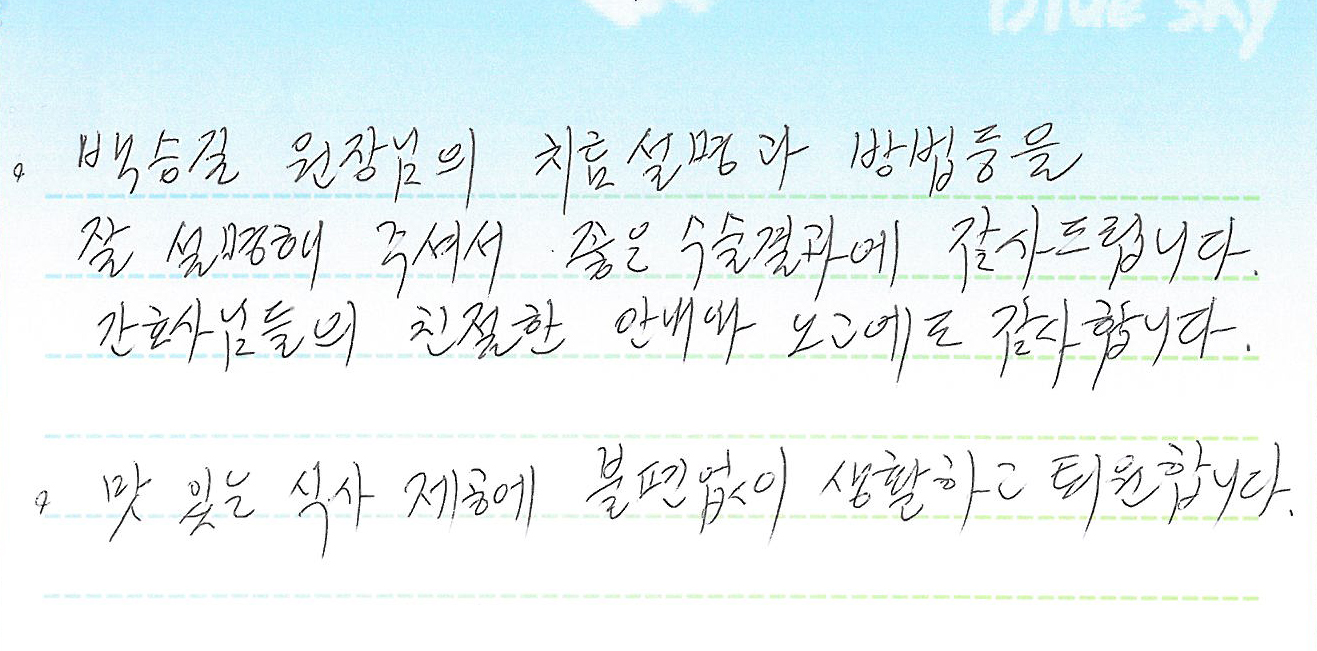 Blue Sky
。 백승길 원장님의 치름설명과 방법등을
잘 설명해 주셔서 좋은 수술결과에 감사드립니다.
간호사님들의 친절한 안내와 노고에도 감사합니다.
。 맛 있는 식사 제공에 불편없이 생활하고 퇴원합니다.